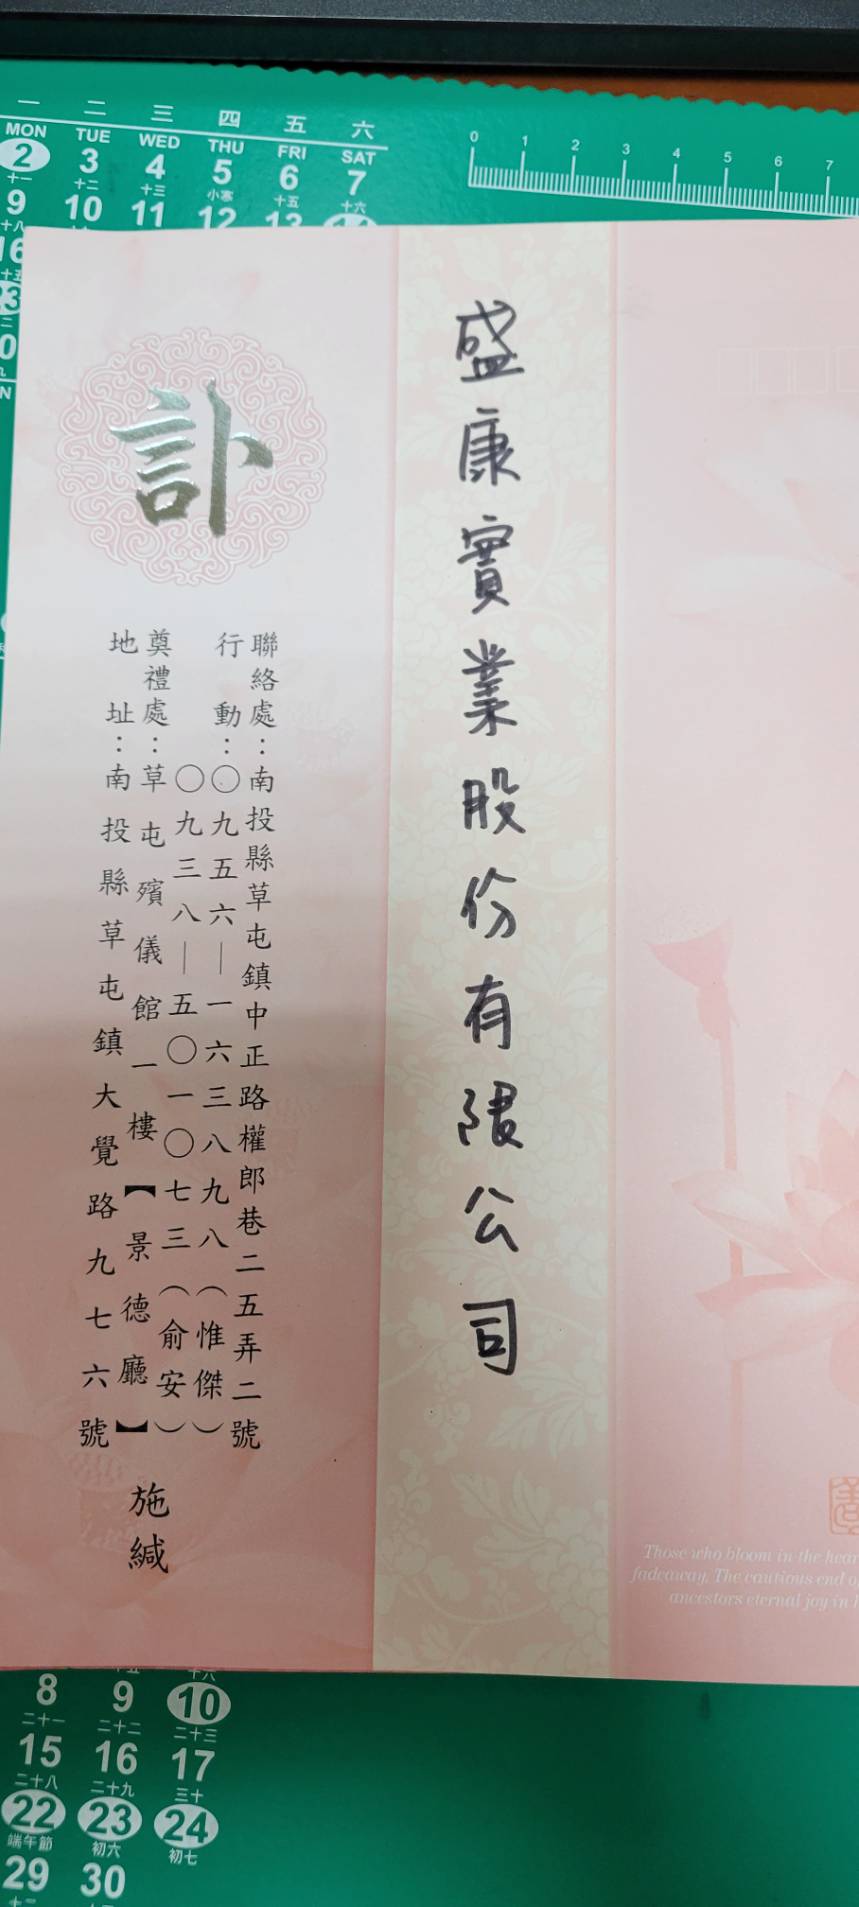 一 二 三 四 五 六
MON TUE WED THU FRI SAT
2 3 4 5 6 7
十一 十二 十三 小寒 十五 十六
9 10 11 12 13
十八
0 1 2 3 4 5 6 7
盛康實業股份有限公司
訃
聯絡處：南投縣草屯鎮中正路權郎巷二五弄二號
行動：〇九五六—一六三八九八（惟傑）
〇九三八—五〇一〇七三（俞安）
奠禮處：草屯殯儀館一樓【景德廳】
地址：南投縣草屯鎮大覺路九七六號
施緘
Those who bloom in the hear
fadeaway. The cautious end o
ancestors eternal joy in h
8 9 10
二十一 二十二 二十三
15 16 17
二十八 二十九 三十
22 23 24
端午節 初六 初七
29 30